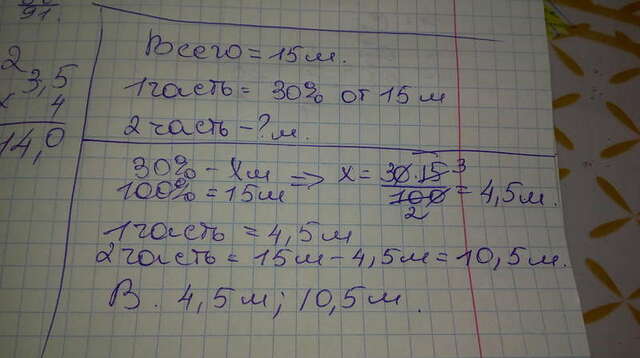 91.
2
3,5
× 4
14,0
Всего = 15 м.
1 часть = 30% от 15 м
2 часть - ? м.
30% - х м ⇒ х = 30·15 3 / 100 2 = 4,5 м.
100% = 15 м
1 часть = 4,5 м
2 часть = 15 м - 4,5 м = 10,5 м.
В. 4,5 м; 10,5 м.